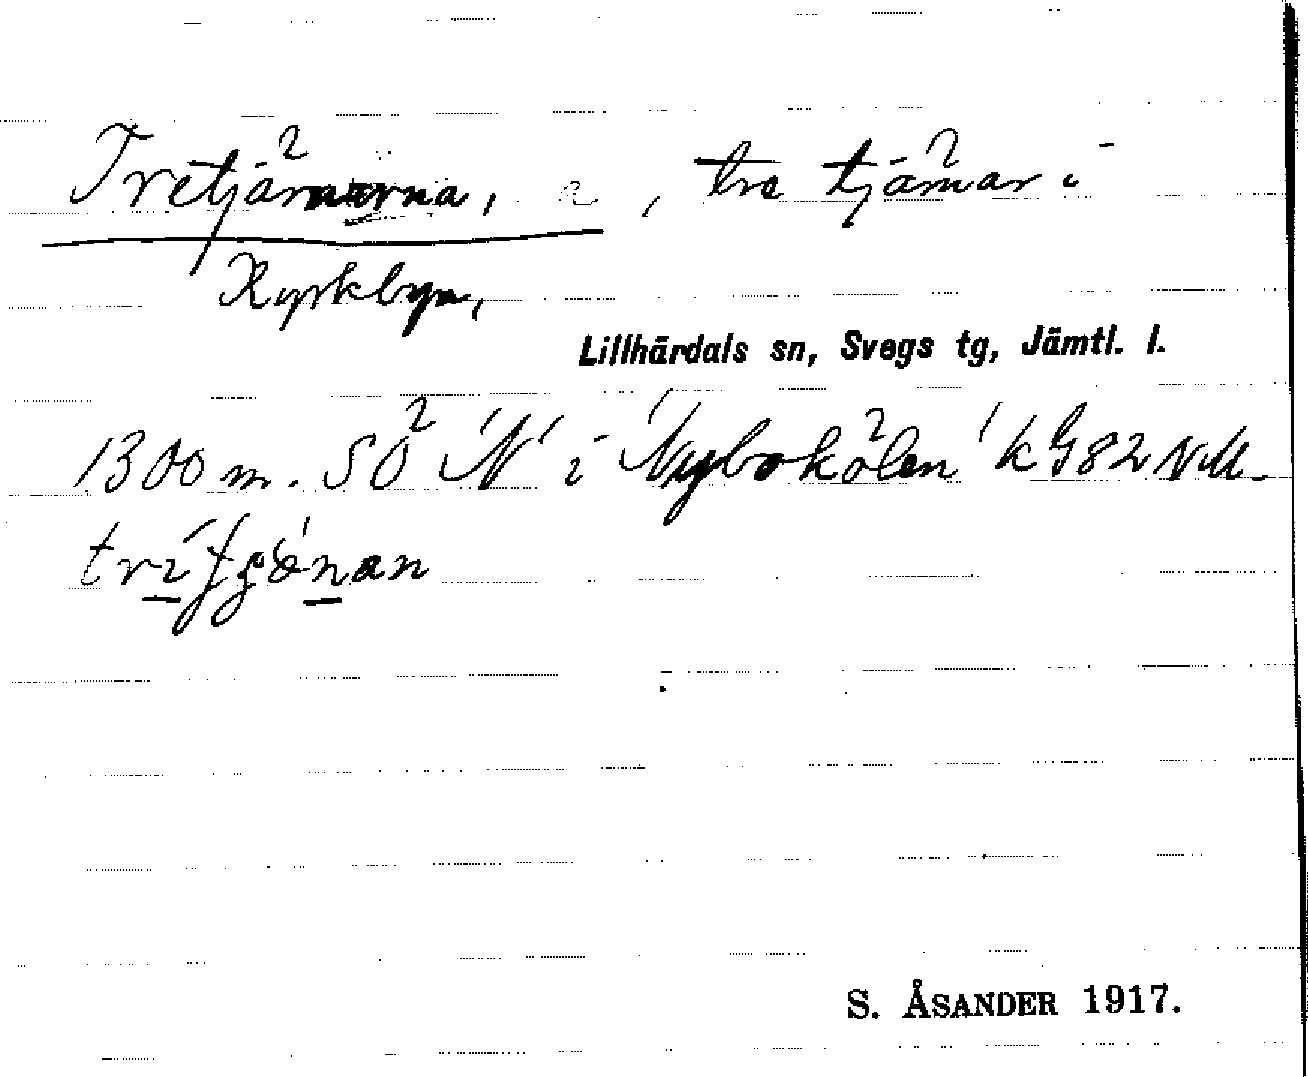 Tretjärnarna, , tre tjärnar i
Kyrkbyn,
Lillhärdals sn, Svegs tg, Jämtl. l.
1300 m. SÖ 'N' i 'Nybokölen' k G82 NM
S. ÅSANDER 1917.